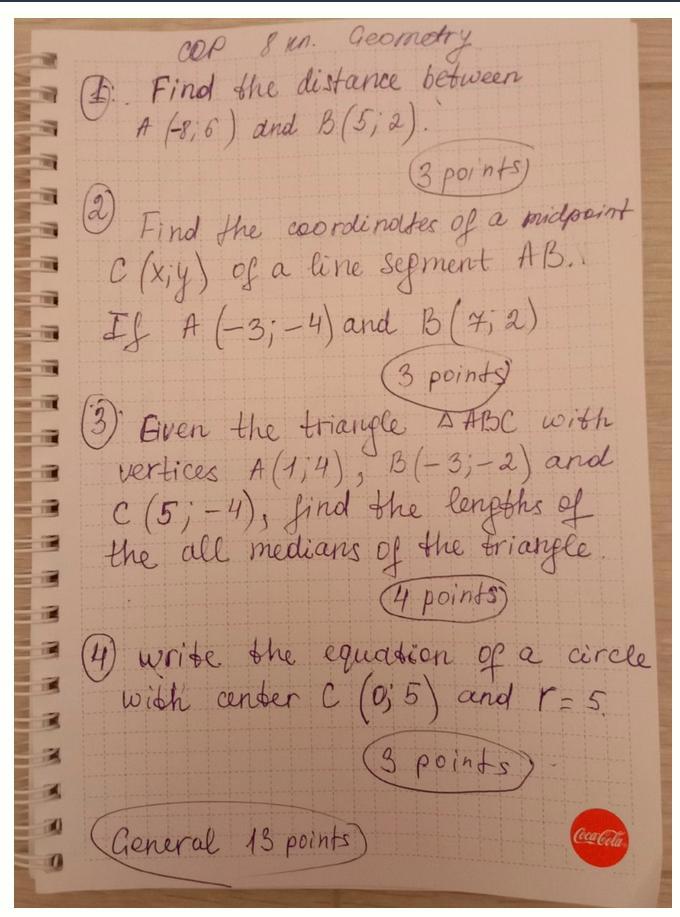 СОР 8 кл. Geometry
1. Find the distance between
A (-8; 6) and B(5; 2).
3 points
2
Find the coordinates of a midpoint
C (x;y) of a line segment AB.
If A (-3; -4) and B(7; 2)
3 points
3. Given the triangle △ABC with
vertices A(1; 4), B(-3; -2) and
C (5; -4), find the lengths of
the all medians of the triangle.
4 points
4 write the equation of a circle
with center C (0; 5) and r = 5.
3 points
General 13 points
Coca-Cola